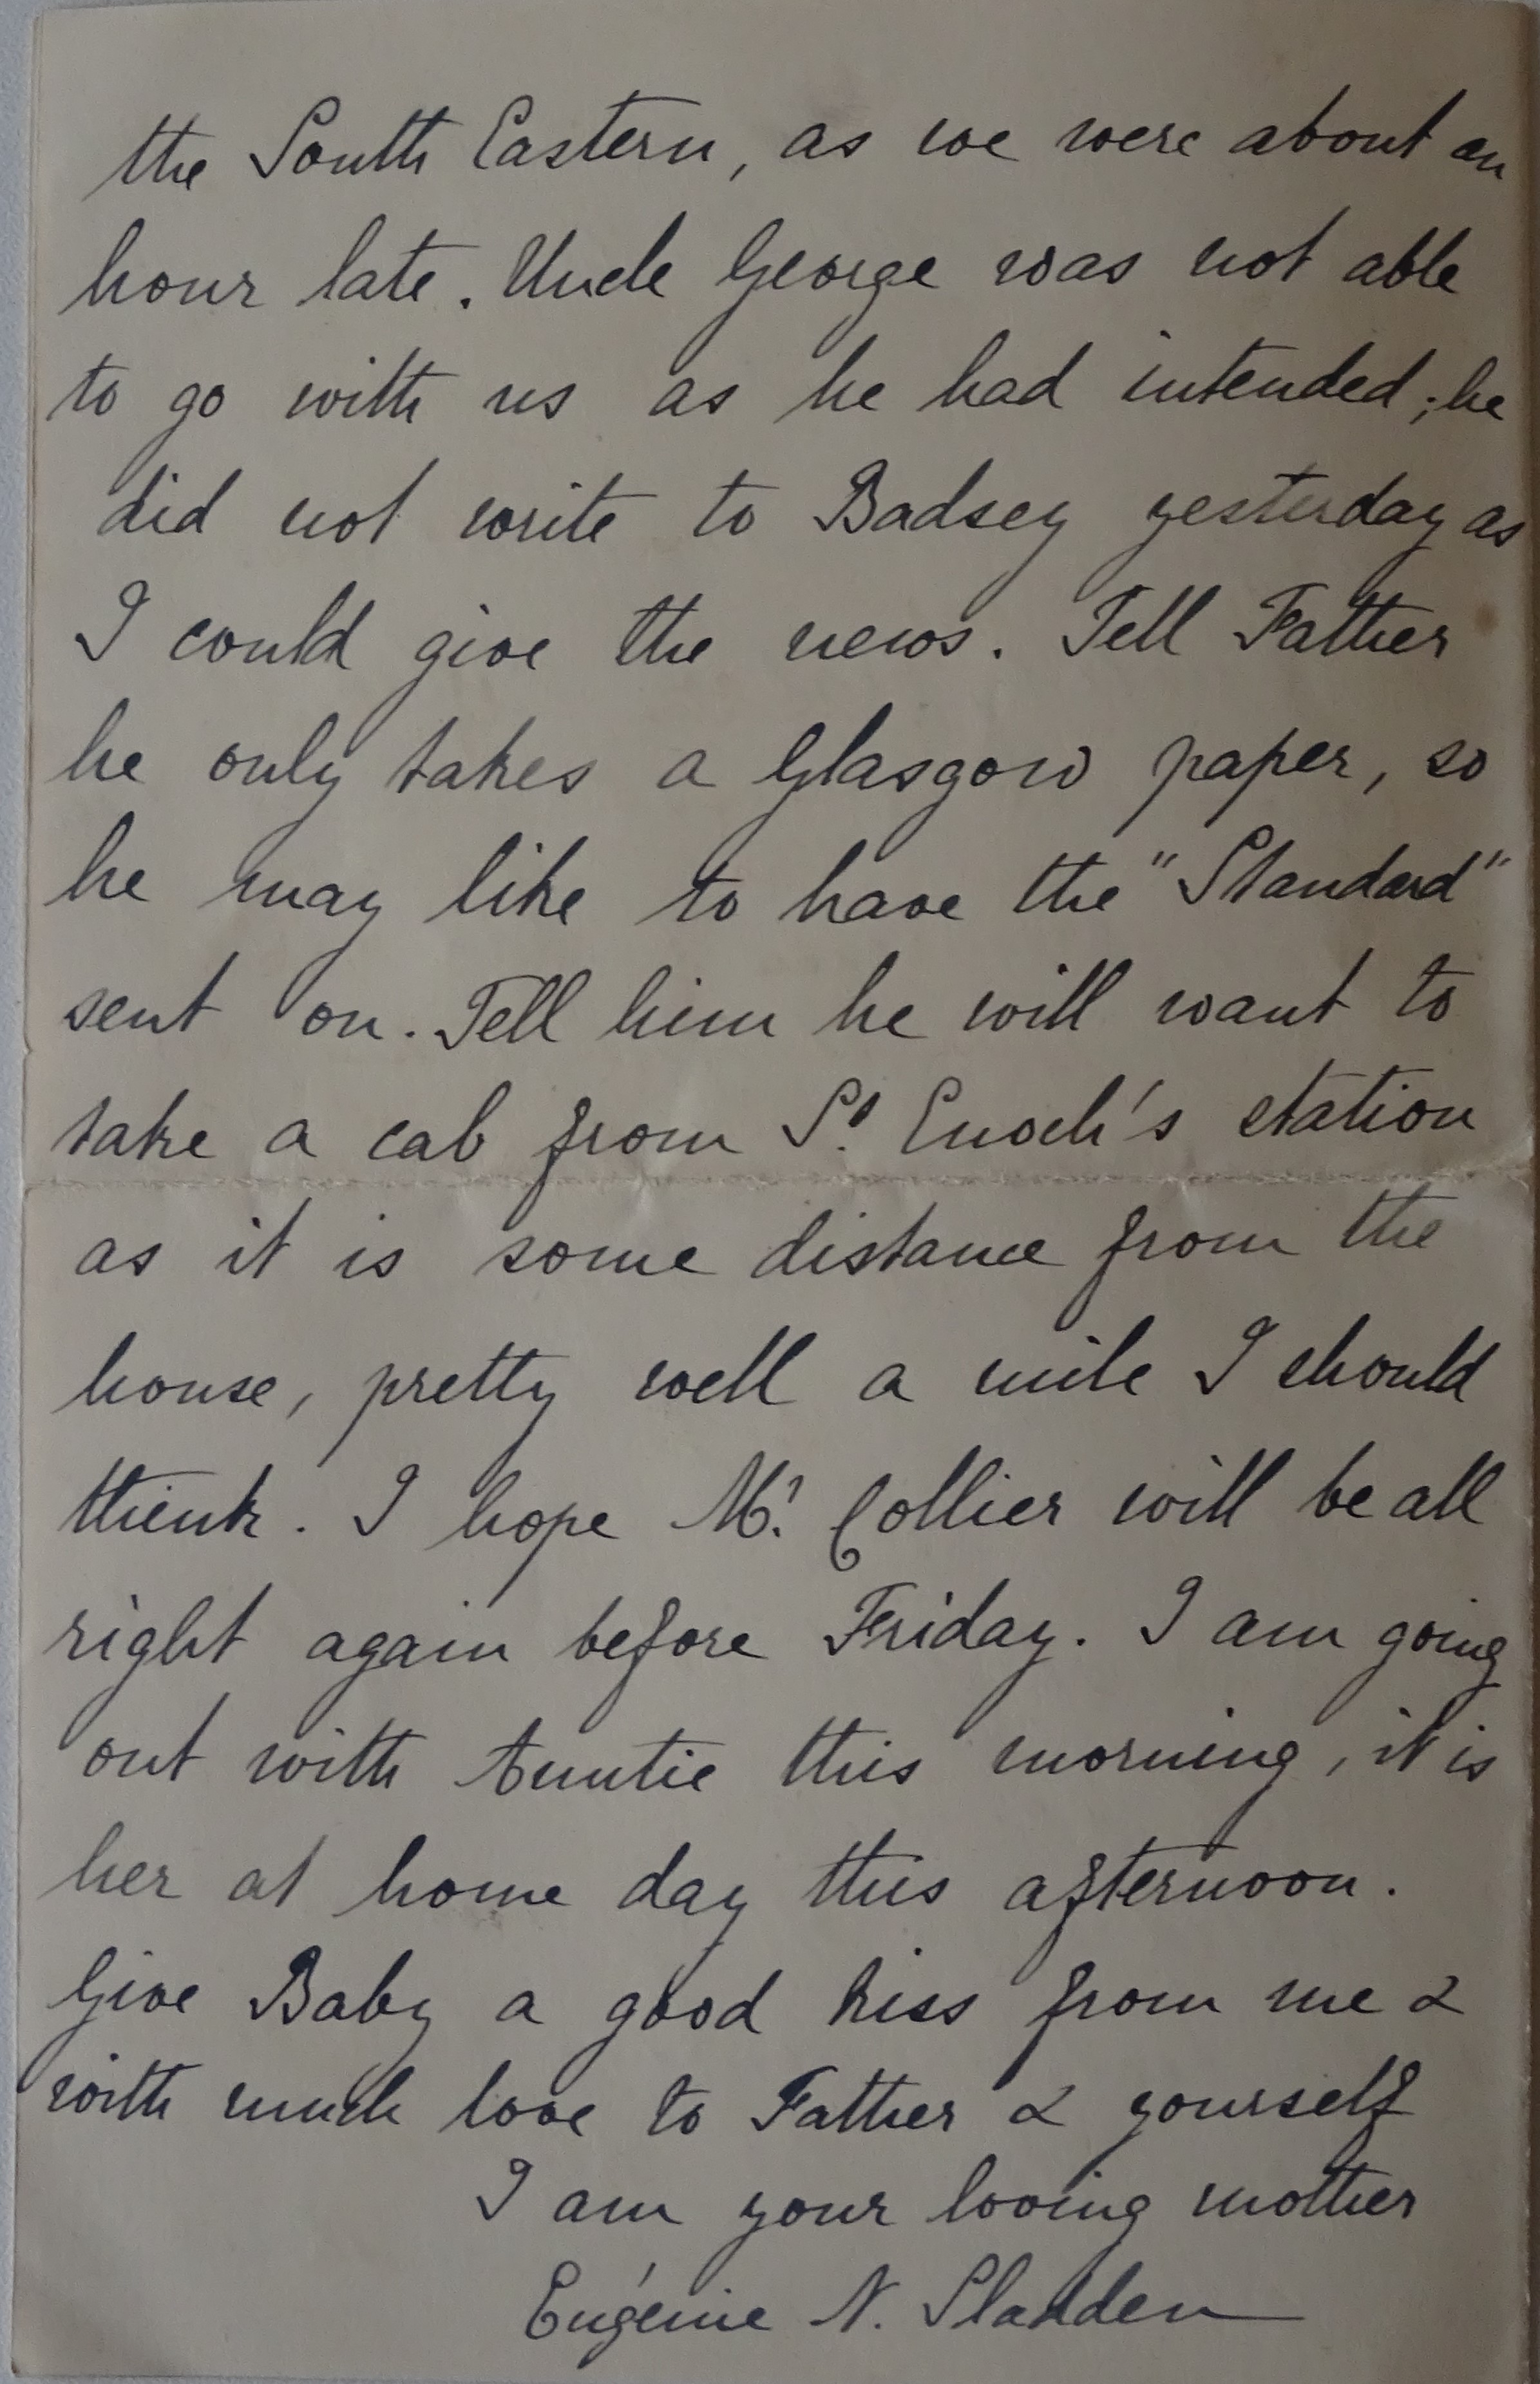 the South Eastern, as we were about an
hour late. Uncle George was not able
to go with us as he had intended; he
did not write to Badsey yesterday as
I could give the news. Tell Father
he only takes a Glasgow paper, so
he may like to have the "Standard"
sent on. Tell him he will want to
take a cab from St. Enoch's station
as it is some distance from the
house, pretty well a mile I should
think. I hope Mr. Collier will be all
right again before Friday. I am going
out with Auntie this morning, it is
her at home day this afternoon.
Give Baby a good kiss from me &
with much love to Father & yourself
I am your loving mother
Eugénie N. Sladden